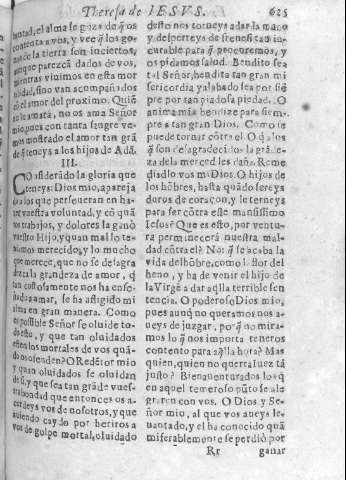 Theresa de IESVS. 625
luntad, el alma se goza de q̃ os
contenta a vos, y vee q̃ los go-
zos de la tierra son inciertos,
aunque parezcã dados de vos,
mientras viuimos en esta mor
talidad, sino van acompañados
cõ el amor del proximo. Quiẽ
no le amàra, no os ama Señor
mio, pues con tanta sangre ve-
mos mostrado el amor tan grã
de, q̃ teneys a los hijos de Adã.
III.
COnsiderãdo la gloria que
teneys: Dios mio, apareja
da a los que perseueran en ha-
zer vuestra voluntad, y cõ quã
tos trabajos, y dolores la ganò
vuestro Hijo, y quan mal lo te-
niamos merecido, y lo mucho
que merece, que no se desagra
dezca la grandeza de amor, q̃
tan costosamente nos ha ense-
ñado a amar, se ha afligido mi
alma en gran manera. Como
es possible Señor se oluide to-
do esto, y que tan oluidados
esten los mortales de vos quã-
do os ofenden? O Redẽtor mio
y quan oluidados se oluidan
de si, y que sea tan grãde vues-
tra bondad que entonces os a-
cordeys vos de nosotros, y que
auiendo caydo por heriros a
vos de golpe mortal, oluidado
desto nos torneys a dar la mano
y desperteys de frenesi tan in-
curable para q̃ procuremos, y
os pidamos salud. Bendito sea
tal Señor, bendita tan gran mi
sericordia y alabado sea por siẽ
pre por tan piadosa piedad. O
anima mia bendize para siem-
pre a tan gran Dios. Como se
puede tornar cõtra el. O q̃ a los
q̃ son desagradecidos la grãde-
za de la merced les daña. Reme
diadlo vos mi Dios. O hijos de
los hõbres, hasta quãdo sereys
duros de coraçon, y le terneys
para ser cõtra este mansissimo
Iesus? Que es esto, por ventu-
ra permanecerà nuestra mal-
dad cõtra el? No: q̃ se acaba la
vida del hõbre, como la flor del
heno, y ha de venir el hijo de
la Virgẽ a dar aq̃lla terrible sen
tencia. O poderoso Dios mio,
pues aunq̃ no queramos nos a-
ueys de juzgar, por q̃ no mira-
mos lo q̃ nos importa teneros
contento para aq̃lla hora? Mas
quien, quien no querra Iuez tã
justo? Bienauenturados los q̃
en aquel temeroso pũto se ale
graren con vos. O Dios y Se-
ñor mio, al que vos aueys le-
uantado, y el ha conocido quã
miserablemente se perdiò por
Rr ganar